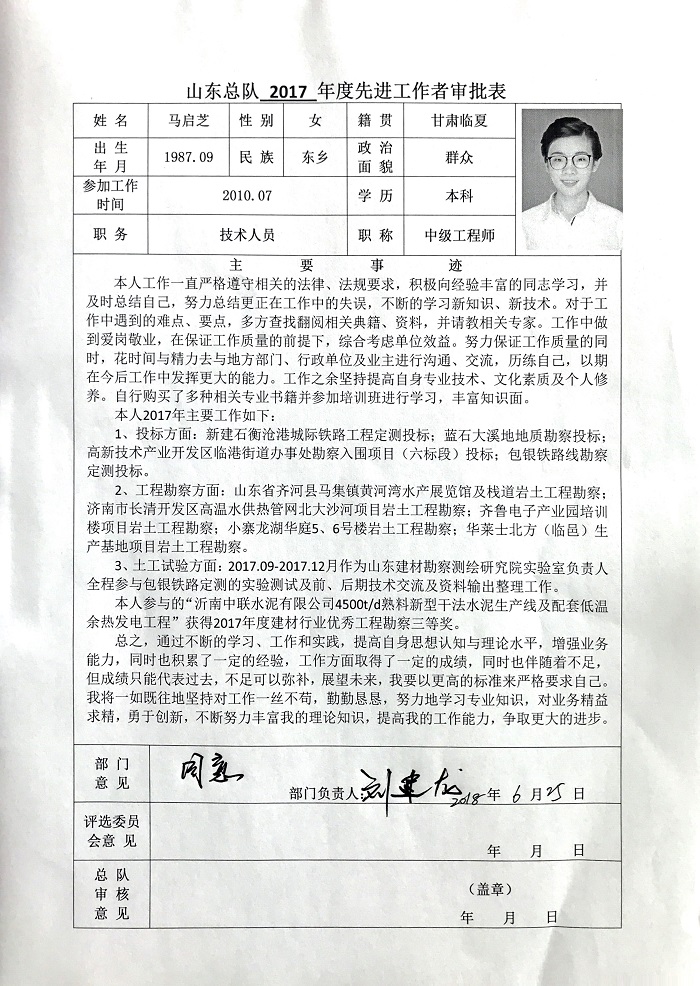 山东总队 2017 年度先进工作者审批表
姓 名 马启芝 性 别 女 籍 贯 甘肃临夏
出 生 年 月 1987.09 民 族 东乡 政 治 面 貌 群众
参加工作时间 2010.07 学 历 本科
职 务 技术人员 职 称 中级工程师
主 要 事 迹
本人工作一直严格遵守相关的法律、法规要求，积极向经验丰富的同志学习，并
及时总结自己，努力总结更正在工作中的失误，不断的学习新知识、新技术。对于工
作中遇到的难点、要点，多方查找翻阅相关典籍、资料，并请教相关专家。工作中做
到爱岗敬业，在保证工作质量的前提下，综合考虑单位效益。努力保证工作质量的同
时，花时间与精力去与地方部门、行政单位及业主进行沟通、交流，历练自己，以期
在今后工作中发挥更大的能力。工作之余坚持提高自身专业技术、文化素质及个人修
养。自行购买了多种相关专业书籍并参加培训班进行学习，丰富知识面。
本人2017年主要工作如下：
1、投标方面：新建石衡沧港城际铁路工程定测投标；蓝石大溪地地质勘察投标；
高新技术产业开发区临港街道办事处勘察入围项目（六标段）投标；包银铁路线勘察
定测投标。
2、工程勘察方面：山东省齐河县马集镇黄河湾水产展览馆及栈道岩土工程勘察；
济南市长清开发区高温水供热管网北大沙河项目岩土工程勘察；齐鲁电子产业园培训
楼项目岩土工程勘察；小寨龙湖华庭5、6号楼岩土工程勘察；华莱士北方（临邑）生
产基地项目岩土工程勘察。
3、土工试验方面：2017.09-2017.12月作为山东建材勘察测绘研究院实验室负责人
全程参与包银铁路定测的实验测试及前、后期技术交流及资料输出整理工作。
本人参与的“沂南中联水泥有限公司4500t/d熟料新型干法水泥生产线及配套低温
余热发电工程”获得2017年度建材行业优秀工程勘察三等奖。
总之，通过不断的学习、工作和实践，提高自身思想认知与理论水平，增强业务
能力，同时也积累了一定的经验，工作方面取得了一定的成绩，同时也伴随着不足，
但成绩只能代表过去，不足可以弥补，展望未来，我要以更高的标准来严格要求自己。
我将一如既往地坚持对工作一丝不苟，勤勤恳恳，努力地学习专业知识，对业务精益
求精，勇于创新，不断努力丰富我的理论知识，提高我的工作能力，争取更大的进步。
部 门 意 见 同意
部门负责人：刘建龙 2018 年 6 月 25 日
评选委员会意见
年 月 日
总 队 审 核 意 见 （盖章）
年 月 日